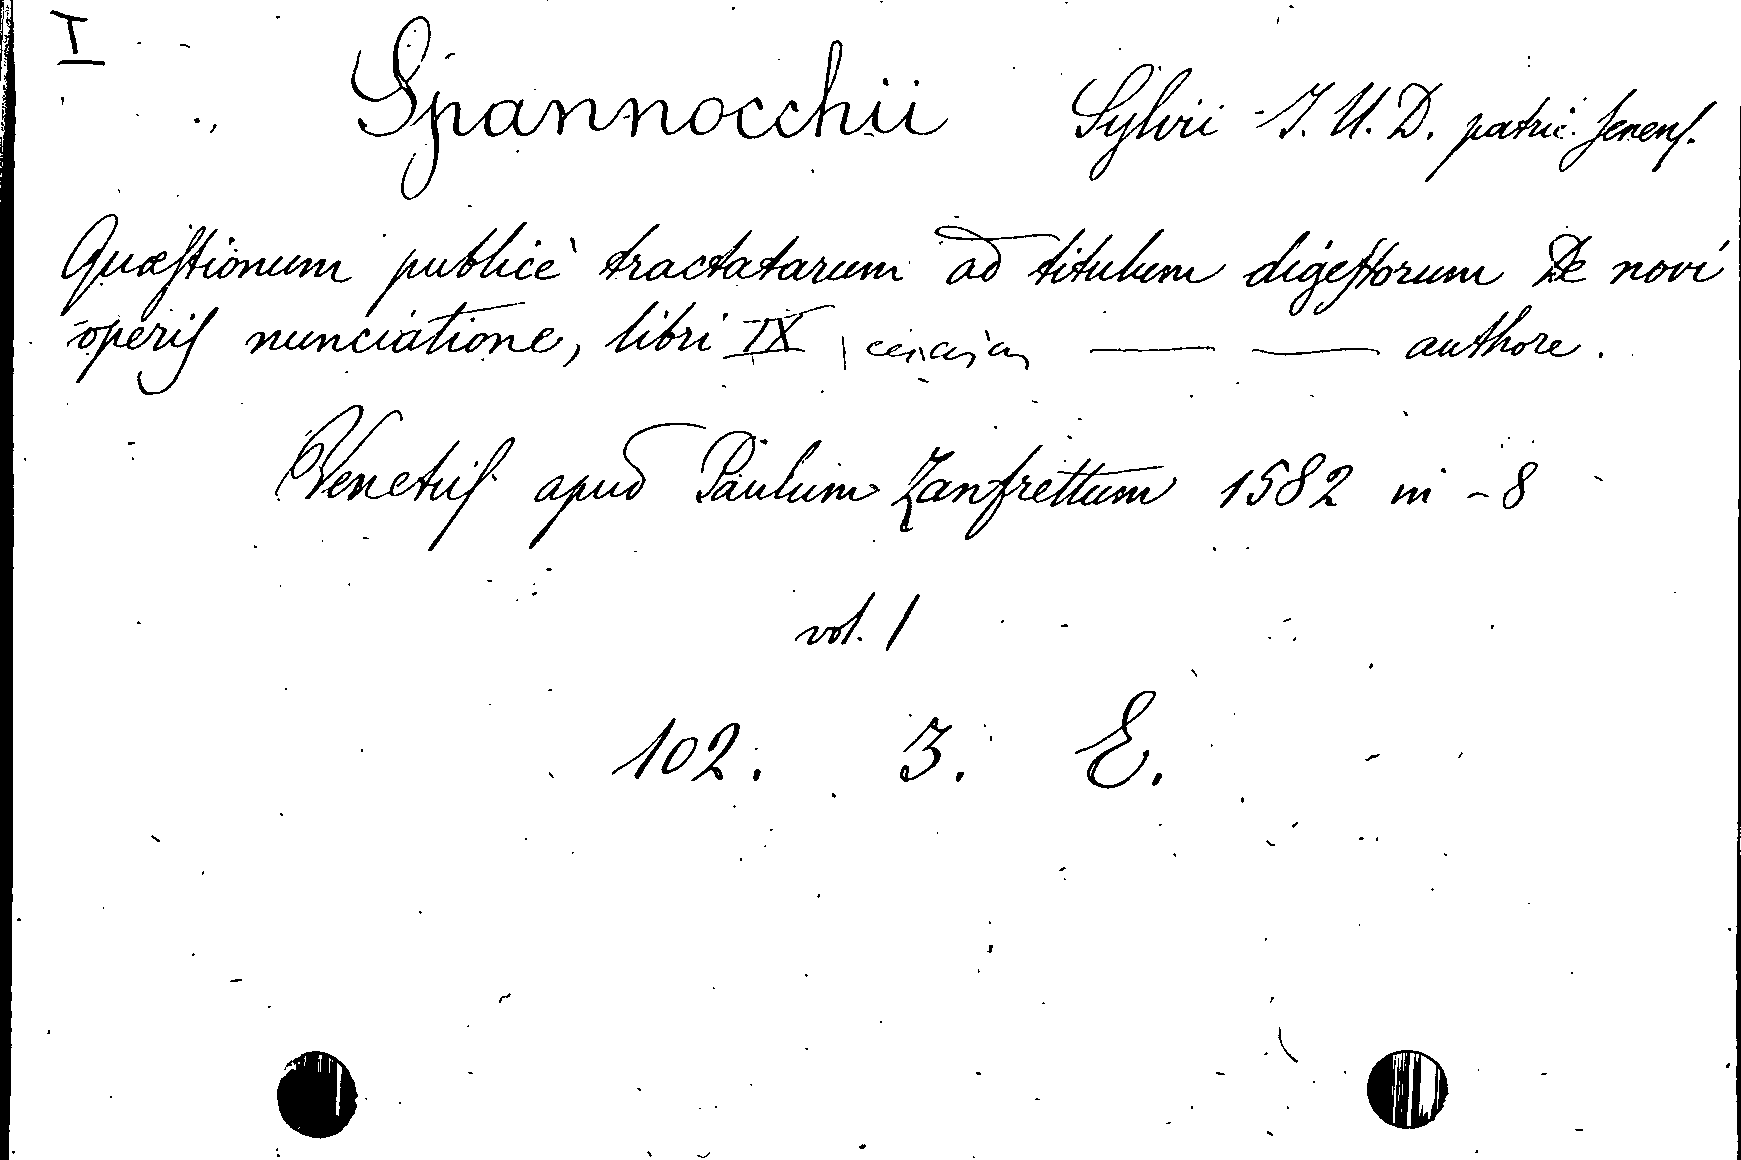 I
Spannocchii Sylvii I. U. D. patric. senens.
Quæstionum publicè tractatarum ad titulum digestorum De novi
operis nunciatione, libri IX — — authore.
Venetiis apud Paulum Zanfrettum 1582 in - 8
vol. 1
102. 3. E.